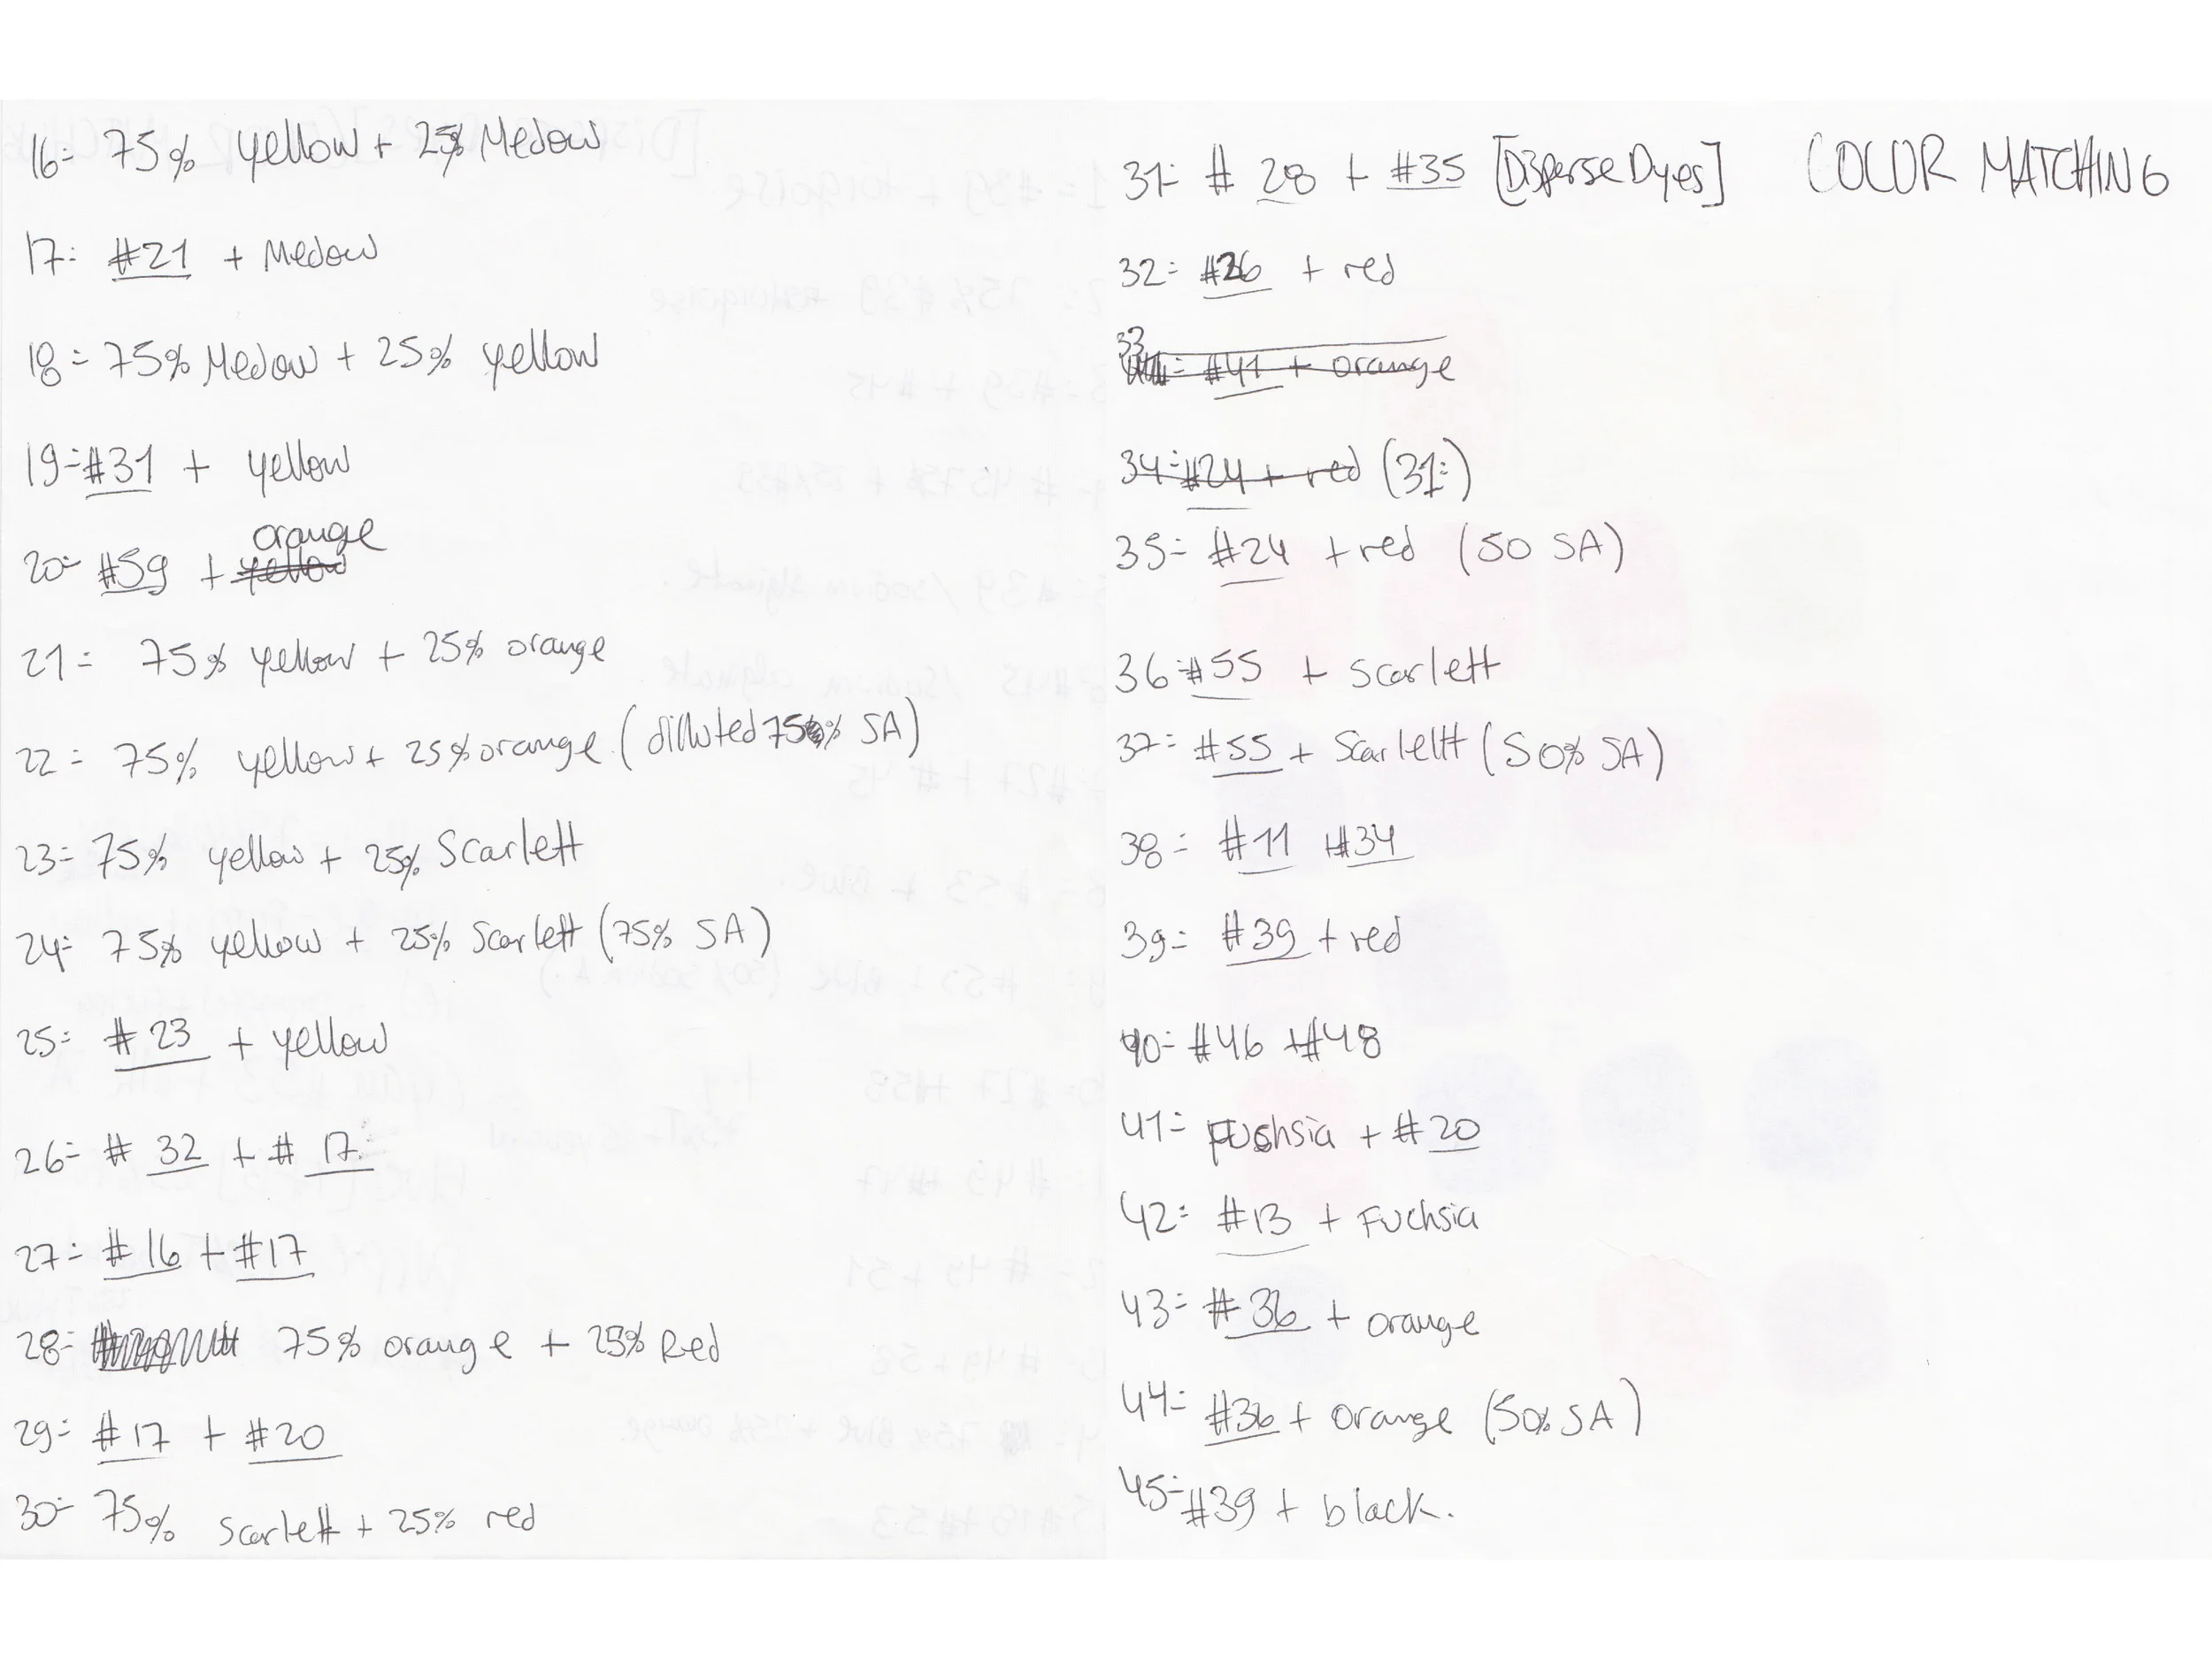 16= 75% yellow + 25% Medow
17= #21 + Medow
18= 75% Medow + 25% yellow
19= #31 + yellow
orange
20= #59 + yellow
21= 75% yellow + 25% orange
22= 75% yellow + 25% orange (dilluted 75% SA)
23= 75% yellow + 25% Scarlett
24= 75% yellow + 25% Scarlett (75% SA)
25= #23 + yellow
26= #32 + #17
27= #16 + #17
28= 75% orange + 25% Red
29= #17 + #20
30= 75% scarlett + 25% red
31= #28 + #35 [Disperse Dyes] COLOR MATCHING
32= #26 + red
33 = #41 + orange
34= #24 + red (31=)
35= #24 + red (50 SA)
36= #55 + scarlett
37= #55 + Scarlett (50% SA)
38= #11 + #34
39= #39 + red
40= #46 + #48
41= Fuchsia + #20
42= #13 + Fuchsia
43= #36 + orange
44= #36 + orange (50% SA)
45= #39 + black.